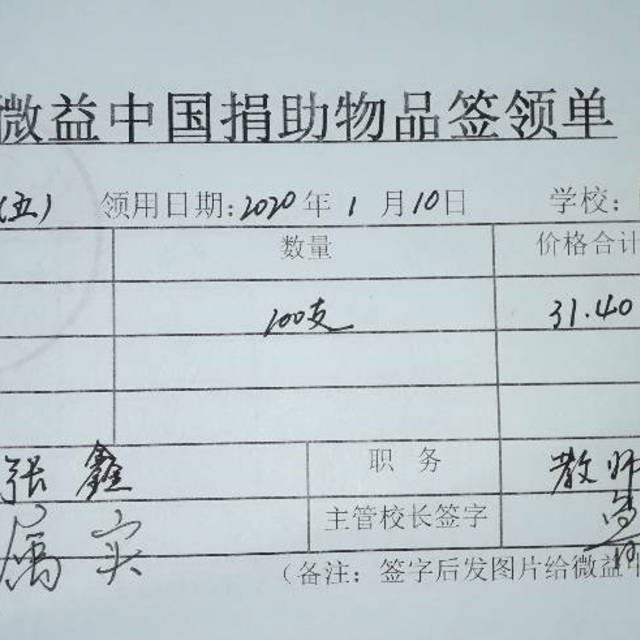 微益中国捐助物品签领单
(五) 领用日期:2020年1月10日 学校:
数量 价格合计
100支 31.40
张鑫 职务 教师
属实 主管校长签字
(备注:签字后发图片给微益中